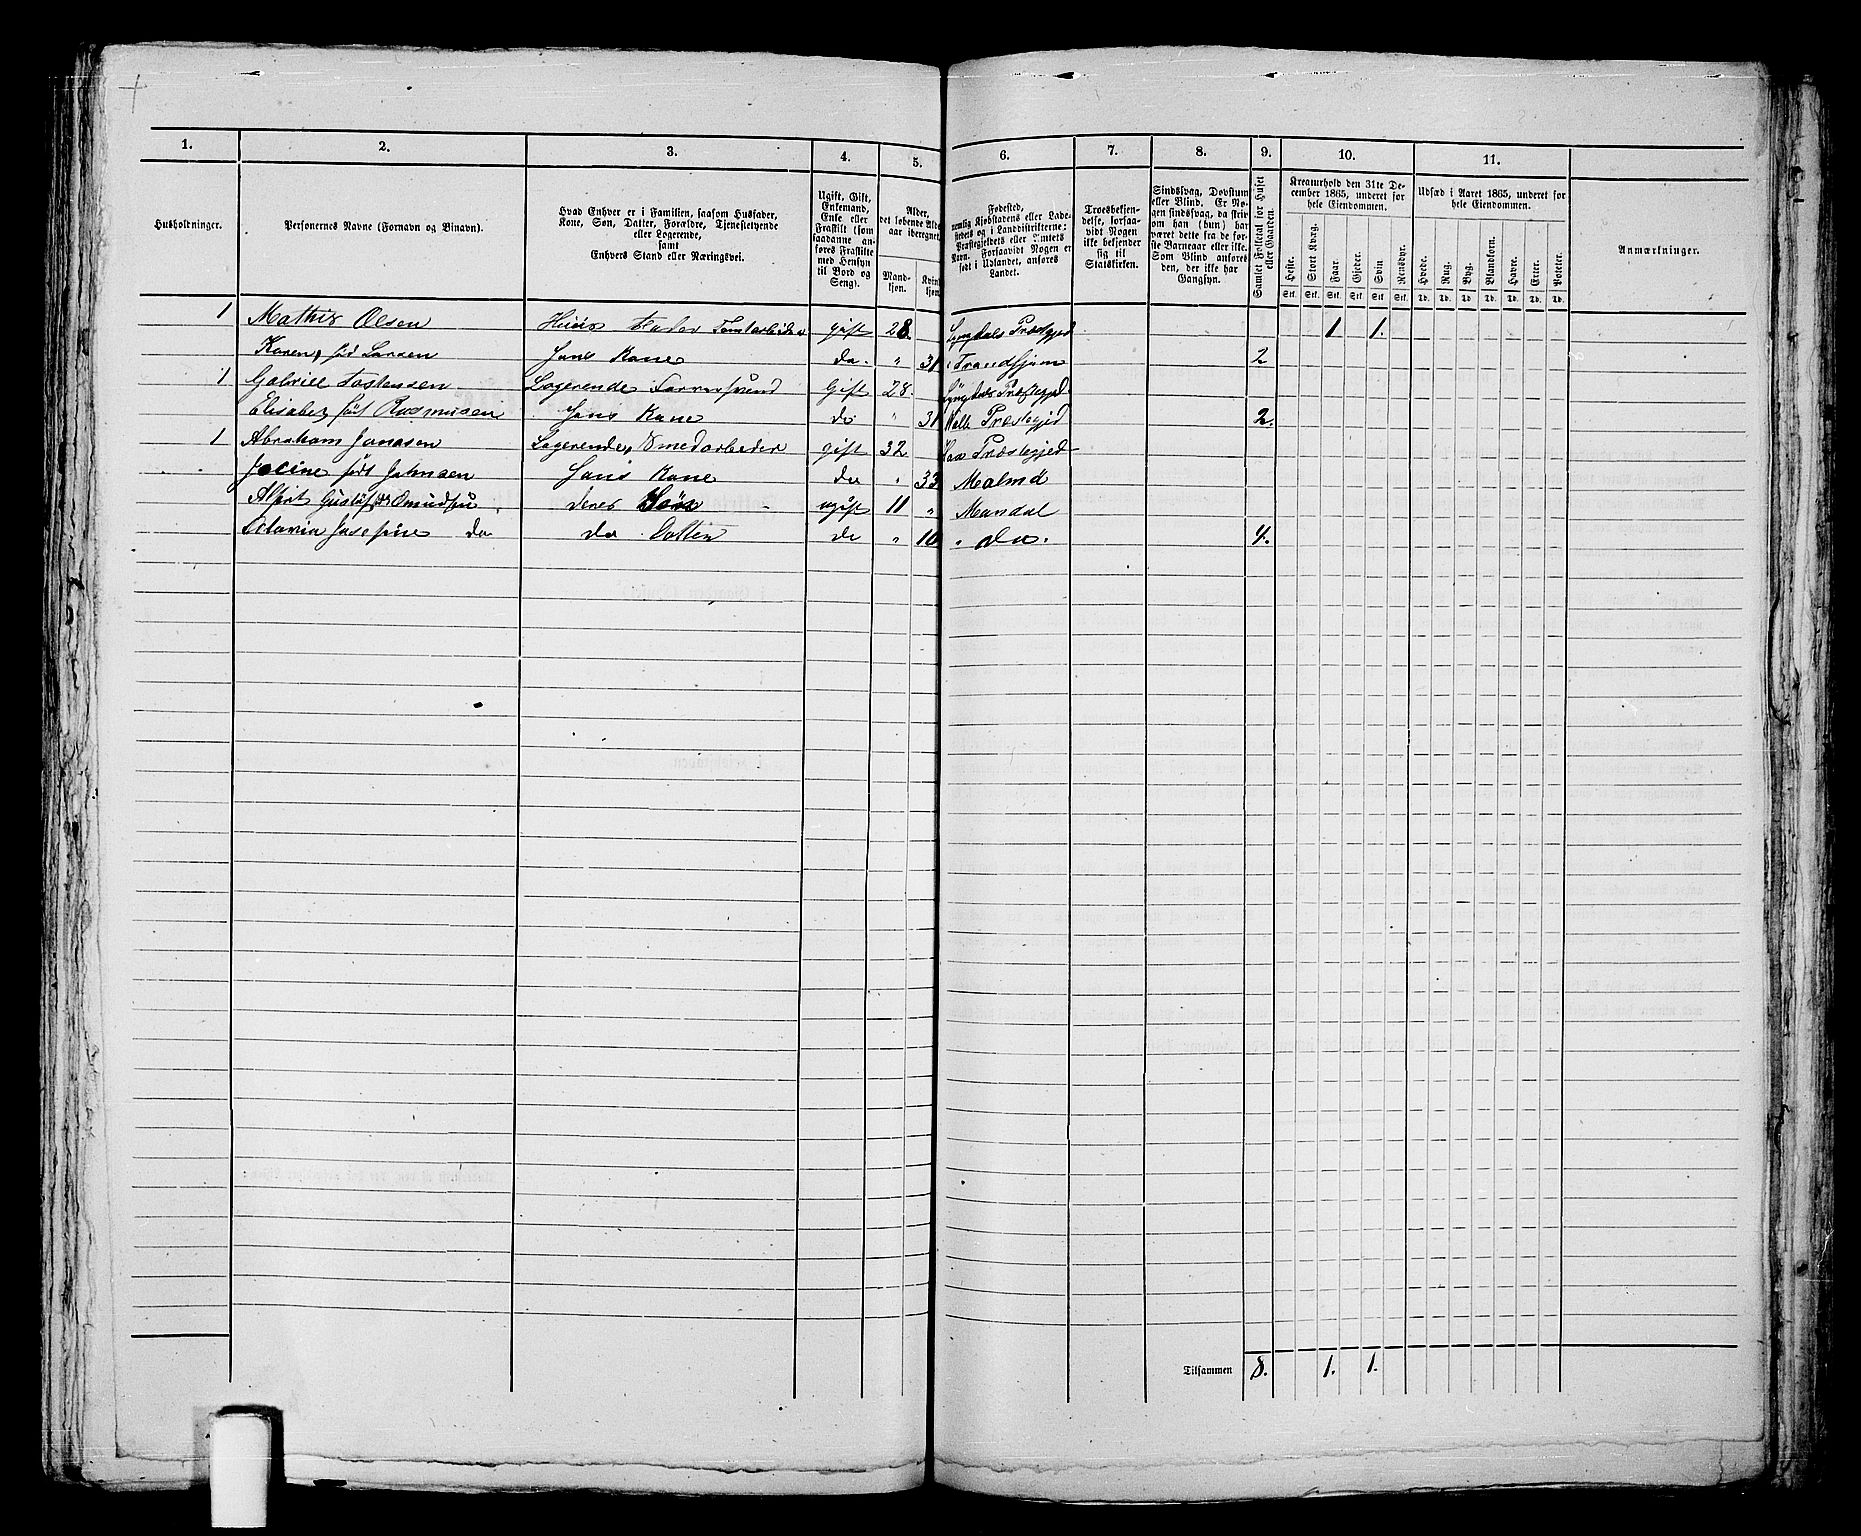 1. 2. 3. 4. 5. 6. 7. 8. 9. 10. 11.
Husholdninger.
Personernes Navne (Fornavn og Binavn).
Hvad Enhver er i Familien, saasom Husfader,
Kone, Søn, Datter, Forældre, Tjenestetyende
eller Logerende,
samt
Enhvers Stand eller Næringsvei.
Ugift, Gift,
Enkemand,
Enke eller
Fraskilt (som
saadanne an-
føres Fraskilte
med Hensyn
til Bord og
Seng).
Alder,
det løbende Alders-
aar iberegnet.
Mand-
kjøn.
Kvin-
kjøn.
Fødested,
nemlig Kjøbstadens eller Lade-
stedets og i Landdistrikterne:
Præstegjeldets eller Amtets
Navn. Forsaavidt Nogen er
født i Udlandet, anføres
Landet.
Troesbekjen-
delse, forsaa-
vidt Nogen
ikke bekjender
sig til
Statskirken.
Sindssvag, Døvstum
eller Blind. Er No-
gen sindssvag, da skriv
om han (hun) har
været dette fra de før-
ste Barneaar eller ikke.
Som Blind anføres
den, der ikke har
Gangsyn.
Samlet Folketal for Huset
eller Gaarden.
Kreaturhold den 31te De-
cember 1865, underet for
hele Eiendommen.
Heste. Stort Kvæg. Faar. Gjeder. Svin. Rensdyr.
Stk. Stk. Stk. Stk. Stk. Stk.
Udsæd i Aaret 1865, underet for
hele Eiendommen.
Hvede. Rug. Byg. Blandkorn. Havre. Erter. Poteter.
Td. Td. Td. Td. Td. Td. Td.
Anmærkninger.
1 Mathis Olsen Huus Fader Tomtarbeider gift 28. Lyngdals Præstegjed 1 1.
Karen, fød Larsen Hans Kone do. " 31 Trondhjem 2
1 Gabriel Tostensen Logerende Gift 28. Lyngdals Præstegjed
Elisabeg født Rasmusen Hans Kone do 31 Halle Præstegjed 2.
1 Abraham Jonasen Logerende, Smedarbeder gift 32 Præstegjed
født Johnsen Hans Kone do " 33 Malmö
Gustaf Omudsen deres Søn ugift 11 " Mandal
Josefine do do Datter do " 10 " do. 4.
Tilsammen 8. 1. 1.